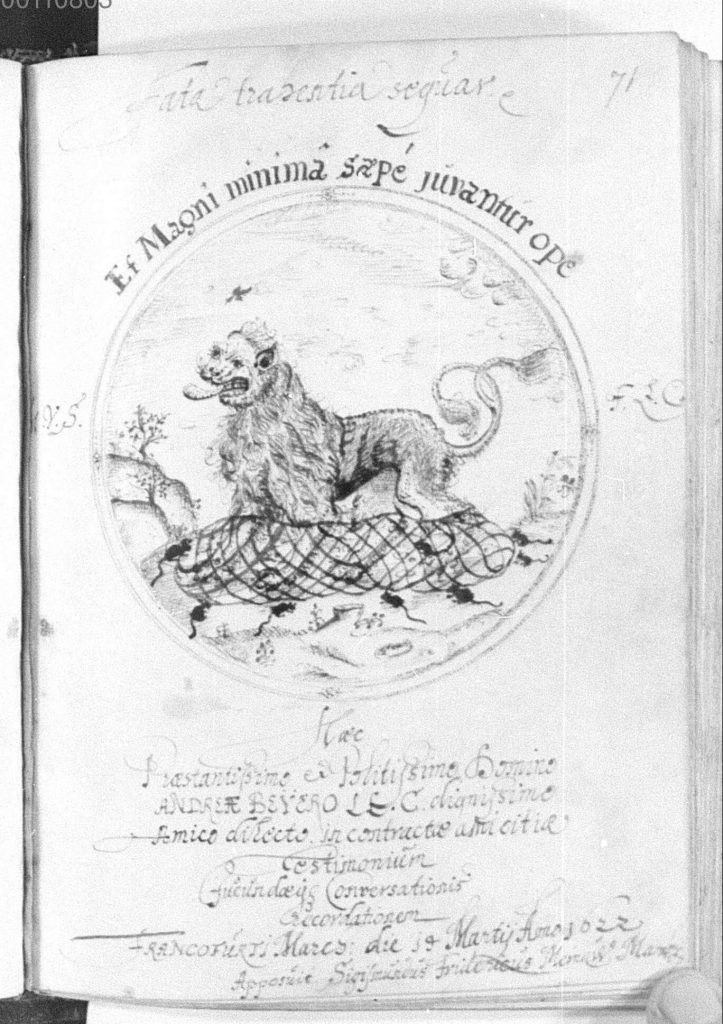 00110803
Fata trahentia sequar
71
Et Magni minimâ sæpé juvantur opé
V. S.
Hæc
Præstantissimo et Politissimo Domino
ANDREÆ BEYERO I. C. dignissimo
Amico dilecto, in contractæ amicitiæ
Testimonium
Jucundæq; Conversationis
Recordationem
FRANCOFURTI March: die 18 Martij Anno 1622
Apposuit Sigismundus Fridericus